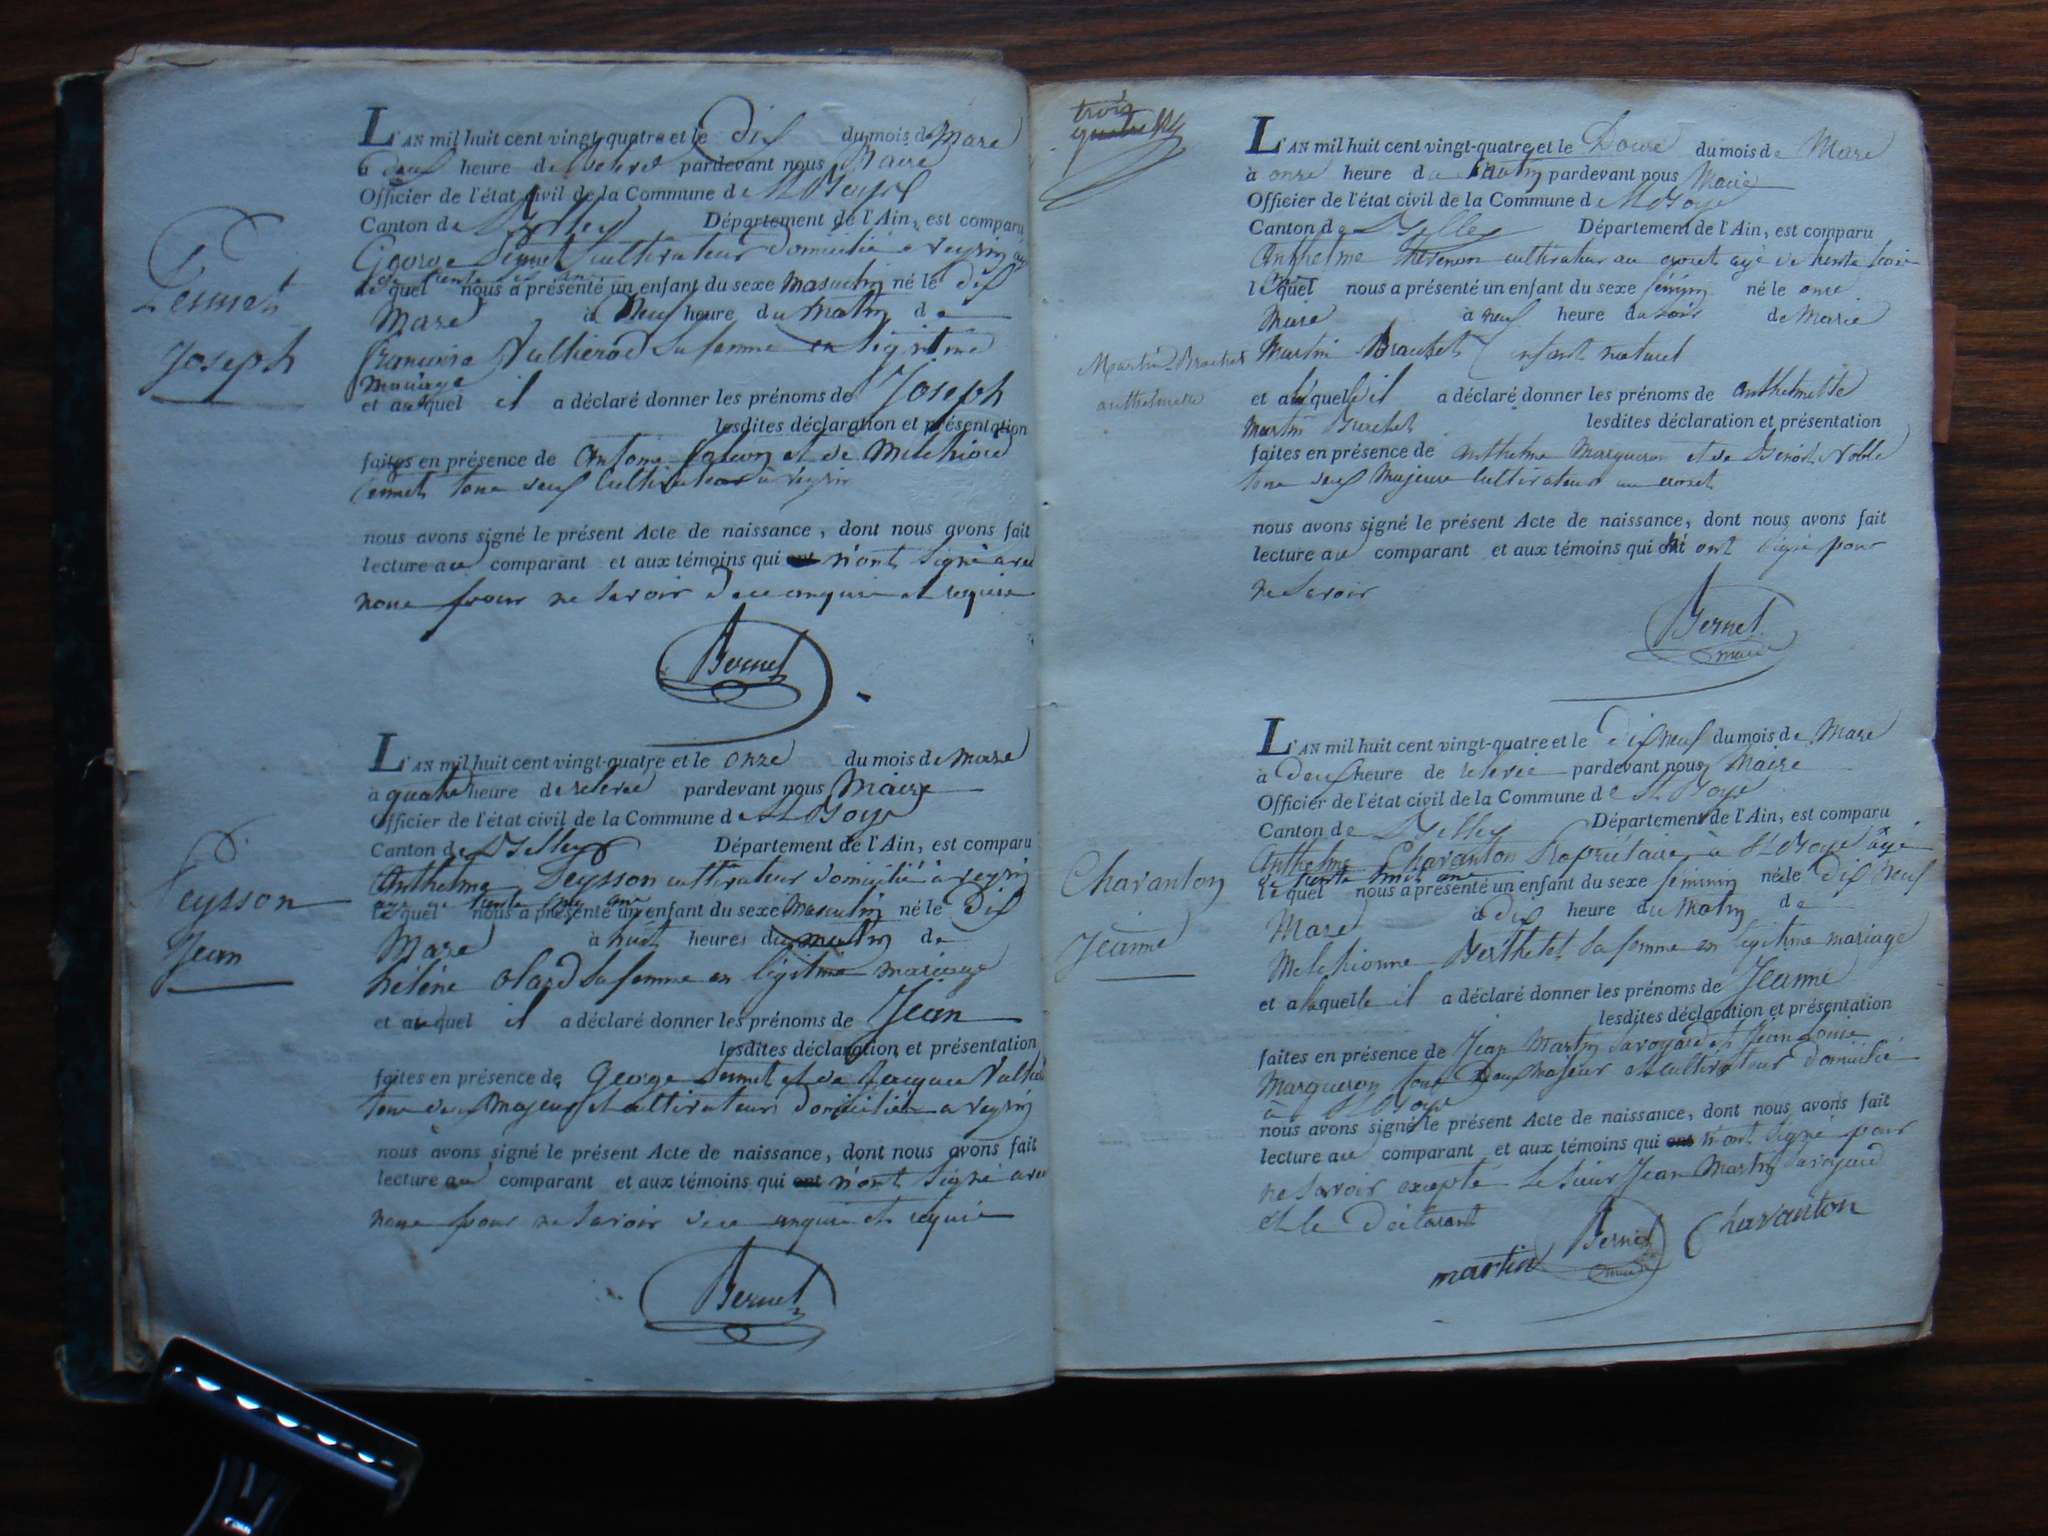 L'AN mil huit cent vingt-quatre et le dix du mois de Mars
à deux heure de relevée pardevant nous Maire
Officier de l'état civil de la Commune de
Canton de Département de l'Ain, est comparu
George cultivateur domicilié a veyrin
de trente ans
le quel nous a présenté un enfant du sexe masculin né le dix
Mars à neuf heure du matin de
françoise sa femme en légitime
mariage
et auquel il a déclaré donner les prénoms de Joseph
lesdites déclaration et présentation
faites en présence de Antoine et de Melchior
tous deux cultivateurs à veyrin
nous avons signé le présent Acte de naissance, dont nous avons fait
lecture au comparant et aux témoins qui ont n'ont signé avec
nous pour ne savoir de ce enquis et requis
Bernet
Joseph
L'AN mil huit cent vingt-quatre et le onze du mois de mars
à quatre heure de relevée pardevant nous Maire
Officier de l'état civil de la Commune de
Canton de Département de l'Ain, est comparu
Anthelme Peysson cultivateur domicilié à veyrin
agé de trente ans
le quel nous a présenté un enfant du sexe masculin né le Dix
Mars à huit heures du matin de
hélène sa femme en légitime mariage
et auquel il a déclaré donner les prénoms de Jean
lesdites déclaration et présentation
faites en présence de George et de Jacques
tous deux majeurs et cultivateurs domiciliés a veyrin
nous avons signé le présent Acte de naissance, dont nous avons fait
lecture au comparant et aux témoins qui ont n'ont signé avec
nous pour ne savoir de ce enquis et requis
Bernet
Peysson
Jean
trois
quatre
L'AN mil huit cent vingt-quatre et le Douze du mois de Mars
à onze heure du matin pardevant nous Maire
Officier de l'état civil de la Commune de
Canton de Département de l'Ain, est comparu
Anthelme cultivateur au agé de trente trois
lequel nous a présenté un enfant du sexe féminin né le onze
Mars à neuf heure du soir de Marie
Martin Brachet enfant naturel
et à laquelle il a déclaré donner les prénoms de anthelmette
martin
lesdites déclaration et présentation
faites en présence de anthelme Margueron et de Benoit Noble
tous deux majeurs cultivateurs au
nous avons signé le présent Acte de naissance, dont nous avons fait
lecture au comparant et aux témoins qui n'ont signé pour
ne savoir
Bernet
maire
Martin Brachet
anthelmette
L'AN mil huit cent vingt-quatre et le dix neuf du mois de Mars
à deux heure de relevée pardevant nous Maire
Officier de l'état civil de la Commune de
Canton de Département de l'Ain, est comparu
Anthelme Charanton Propriétaire à agé
de trente huit ans
le quel nous a présenté un enfant du sexe féminin né le dix neuf
Mars à dix heure du matin de
Melchionne Berthelet sa femme en légitime mariage
et a laquelle il a déclaré donner les prénoms de Jeanne
lesdites déclaration et présentation
faites en présence de Jean Martin Savoyard et Jean Louis
Margueron tous deux majeur et cultivateur domicilié
à
nous avons signé le présent Acte de naissance, dont nous avons fait
lecture au comparant et aux témoins qui ont n'ont signé pour
ne savoir excepté le sieur Jean Martin Savoyard
et le déclarant
martin Bernet Charanton
maire
Charanton
Jeanne